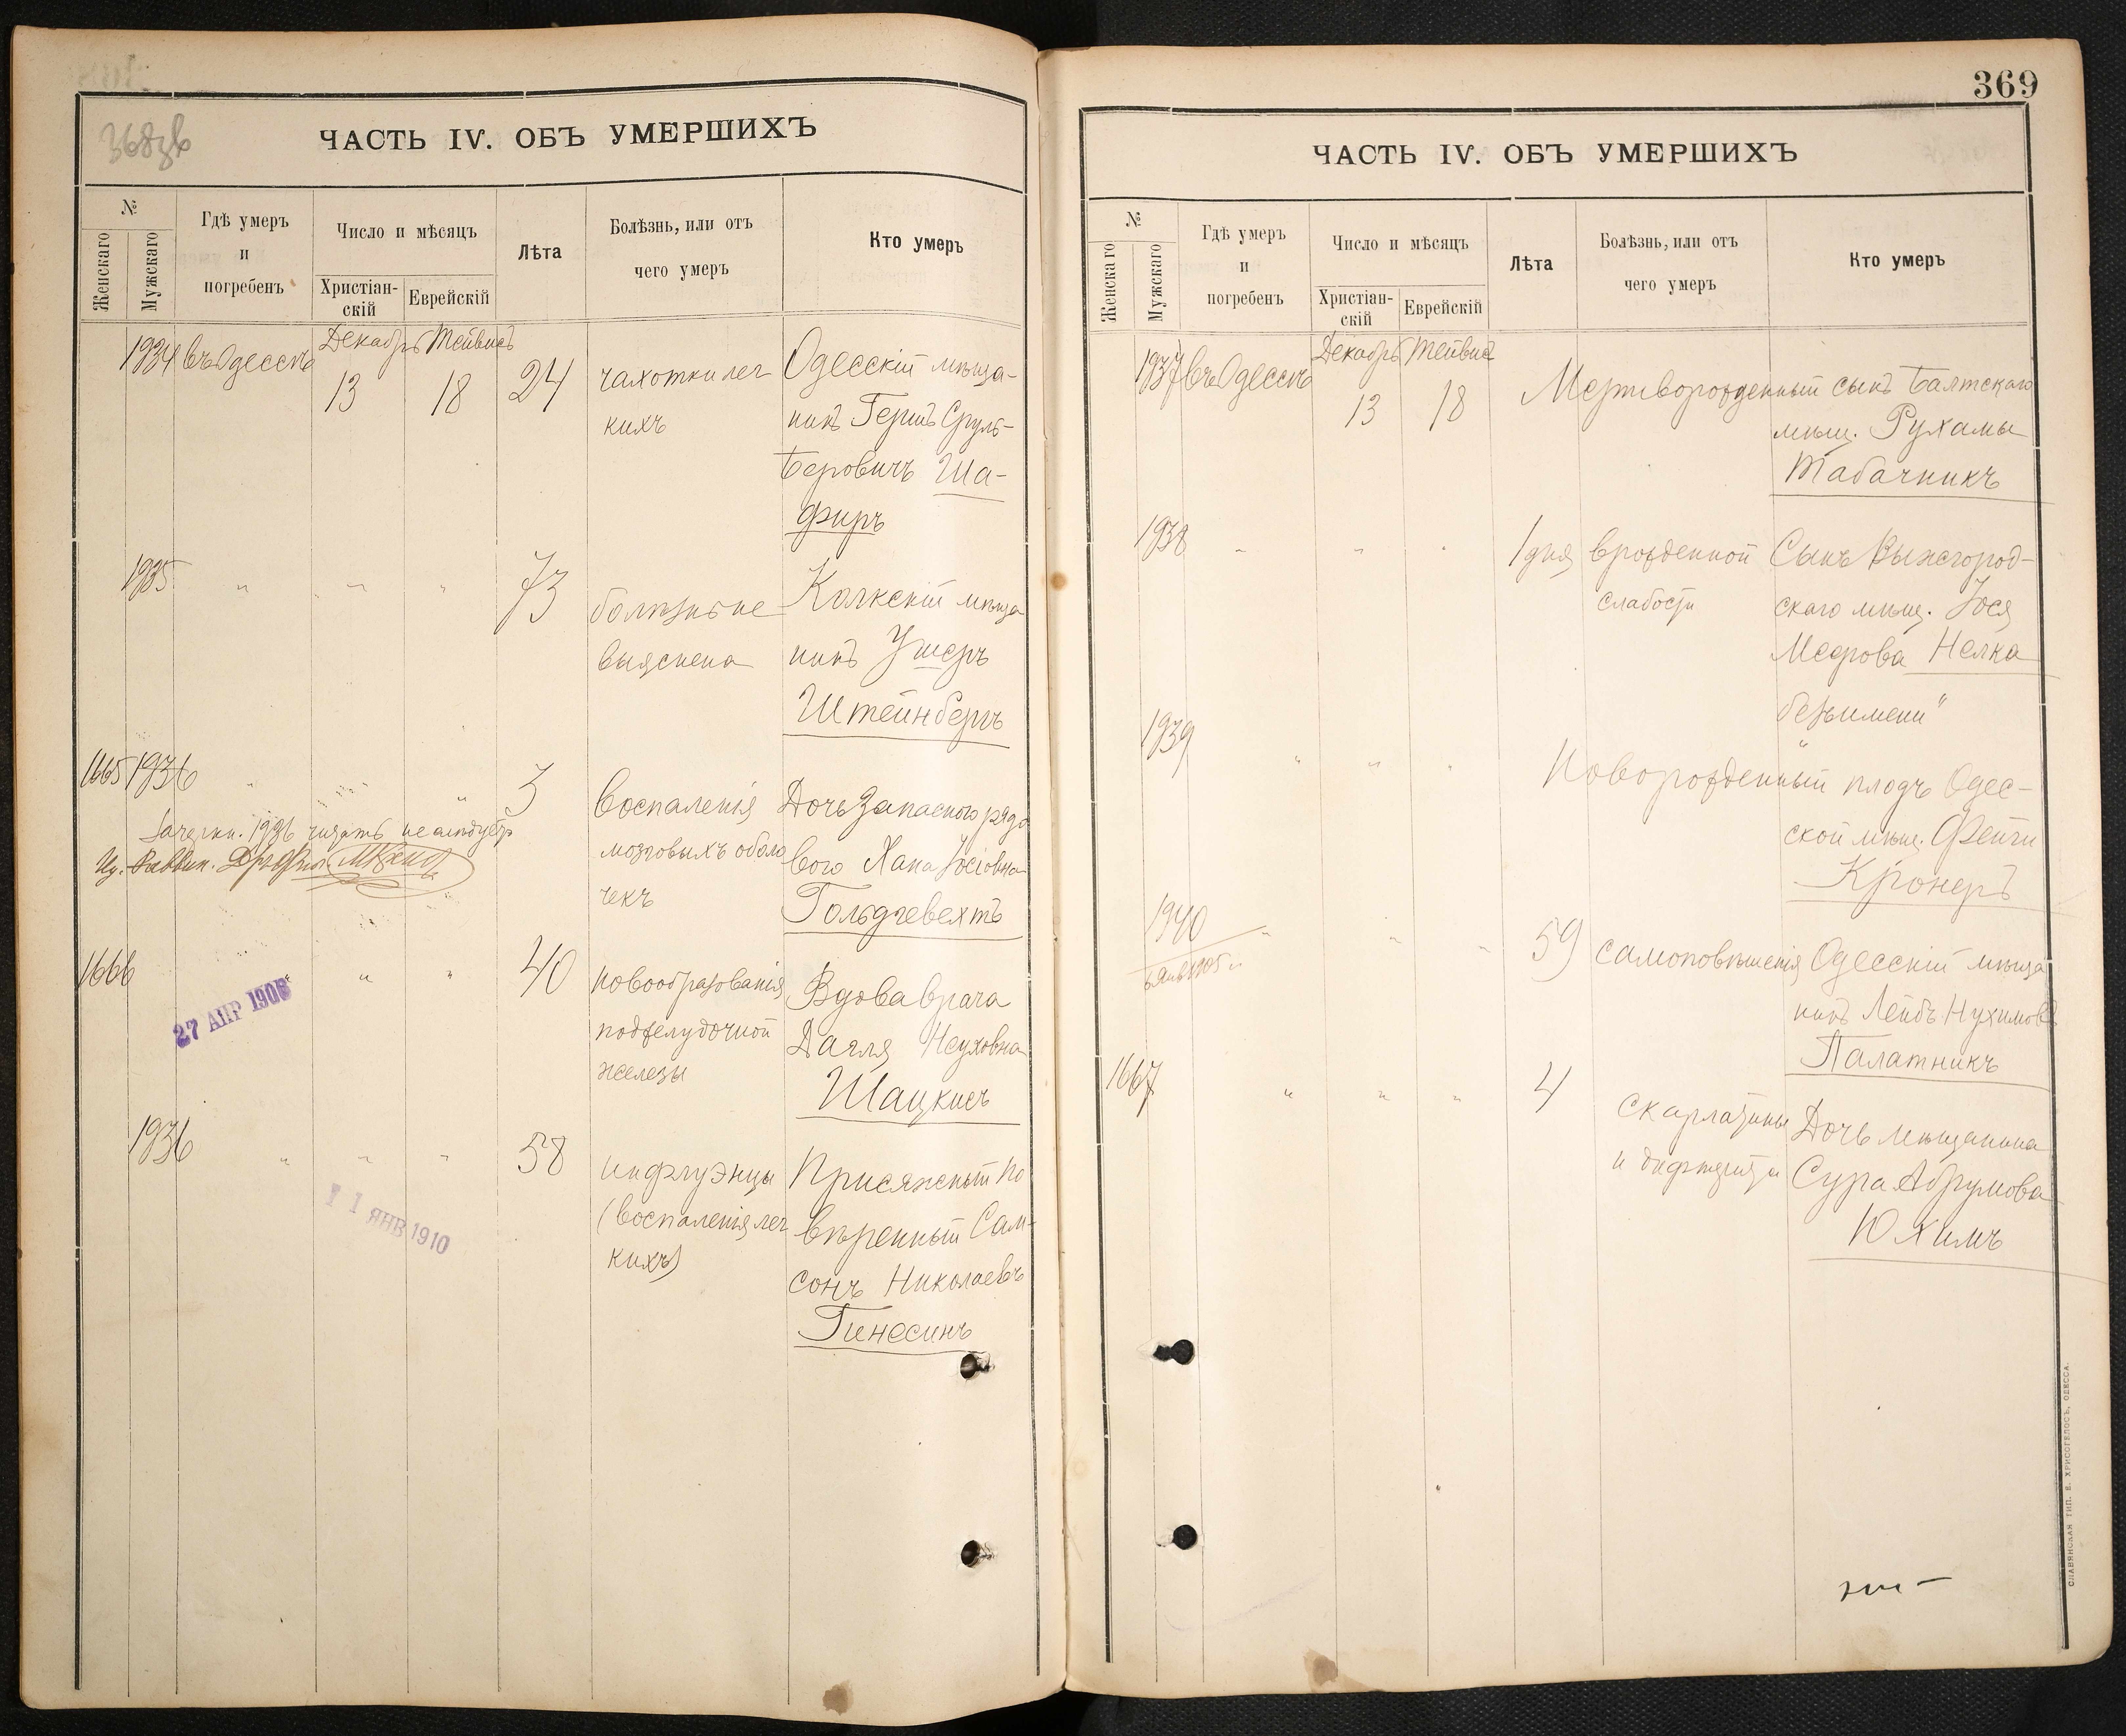 368зв
ЧАСТЬ IV. ОБЪ УМЕРШИХЪ
№
Женскаго
Мужскаго
Гдѣ умеръ
и
погребенъ
Число и мѣсяцъ
Христіан-
скій
Еврейскій
Лѣта
Болѣзнь, или отъ
чего умеръ
Кто умеръ
Декабрь Тейвисъ
1934 въ Одессѣ 13 18 24
чахотки лег
кихъ
Одесскій мѣща-
нинъ Гершъ Сруль-
Беровичъ Ша-
фиръ
1935 " " " 73
болѣзнь не
выяснена
Колкскій мѣща
нинъ Ушеръ
Штейнбергъ
1665 1936 " " " 3
воспаленія
мозговыхъ оболо
чекъ
Дочь запасного рядо
вого Хана Іосіовна
Гольдгевехтъ
Зачеркн. 1936 читать не слѣдуетъ
1666 " " 40
новообразованія
поджелудочной
железы
Вдова врача
Дагля Неуховна
Шацкисъ
27 АПР 1906
1936 " " " 58
инфлуэнцы
(воспаленія лег
кихъ)
Присяжный по
вѣренный Сам-
сонъ Николаевъ
Гинесинъ
11 ЯНВ 1910
369
ЧАСТЬ IV. ОБЪ УМЕРШИХЪ
№
Женскаго
Мужскаго
Гдѣ умеръ
и
погребенъ
Число и мѣсяцъ
Христіан-
скій
Еврейскій
Лѣта
Болѣзнь, или отъ
чего умеръ
Кто умеръ
Декабрь Тейвисъ
1937 въ Одессѣ 13 18
Мертворожденный сынъ Балтскаго
мѣщ. Рухамы
Табачникъ
1938 " " " 1 дня
врожденной
слабости
Сынъ Вышегород-
скаго мѣщ. Іося
Меерова Нелка
безъ имени"
1939 " " "
Новорожденный плодъ Одес-
ской мѣщ. Фейги
Кронеръ
1940 " " " 59
самоповѣшенія
Одесскій мѣща
нинъ Лейбъ Нухимовъ
Палатникъ
1667 " " " 4
скарлатины
и дифтерита
Дочь мѣщанина
Сура Абрумова
Юхимъ
СЛАВЯНСКАЯ ТИП. Е. ХРИСОГЕЛОСЪ, ОДЕССА.